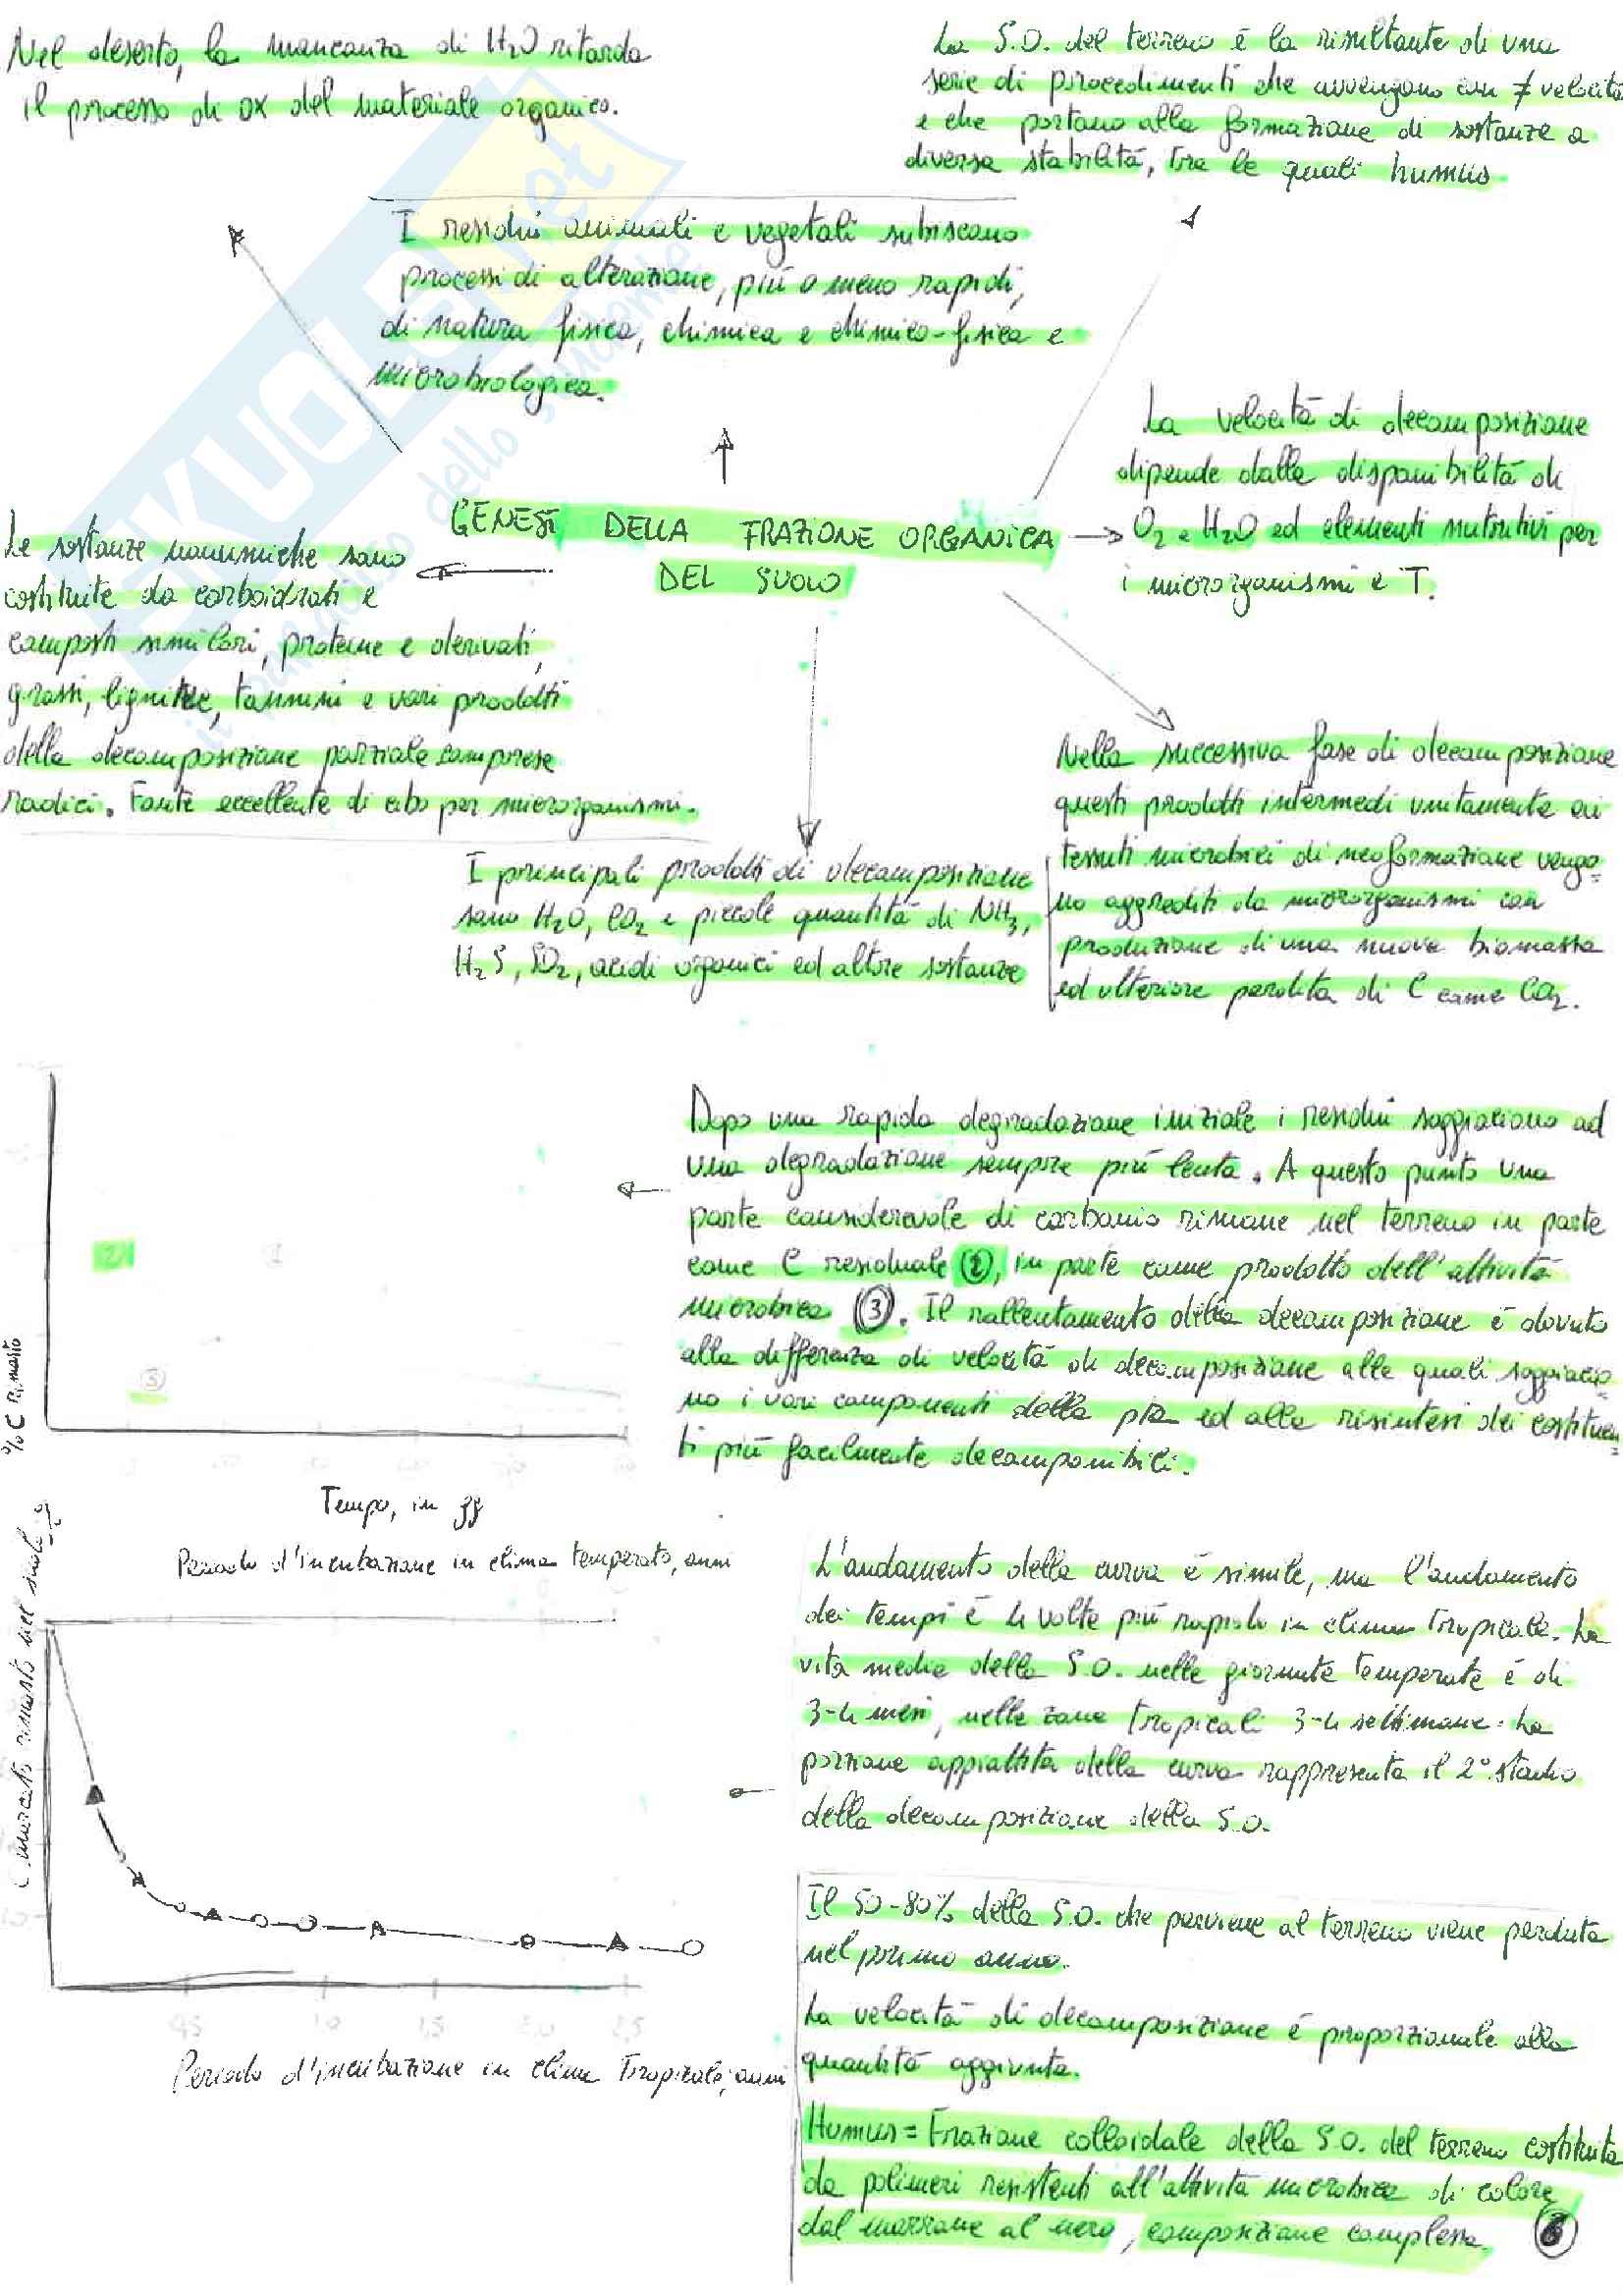 Nel deserto, la mancanza di H2O ritarda
il processo di ox del materiale organico.
La S.O. del terreno è la risultante di una
serie di procedimenti che avvengono con ≠ velocità
e che portano alla formazione di sostanze a
diversa stabilità, tra le quali humus
I residui animali e vegetali subiscono
processi di alterazione, più o meno rapidi,
di natura fisica, chimica e chimico-fisica e
microbiologica.
SKUOLA.net
il paradiso dello studente
La velocità di decomposizione
dipende dalla disponibilità di
O2 e H2O ed elementi nutritivi per
i microrganismi e T.
GENESI DELLA FRAZIONE ORGANICA
DEL SUOLO
Le sostanze nonumiche sono
costituite da carboidrati e
composti similari, proteine e derivati,
grassi, lignine, tannini e vari prodotti
della decomposizione parziale comprese
radici. Fonte eccellente di cibo per microrganismi.
Nella successiva fase di decomposizione
questi prodotti intermedi unitamente ai
tessuti microbici di neoformazione vengo=
no aggrediti da microrganismi con
produzione di una nuova biomassa
ed ulteriore perdita di C come CO2.
I principali prodotti di decomposizione
sono H2O, CO2 e piccole quantità di NH3,
H2S, SO2, acidi organici ed altre sostanze
Dopo una rapida degradazione iniziale i residui soggiaciono ad
una degradazione sempre più lenta. A questo punto una
parte considerevole di carbonio rimane nel terreno in parte
come C residuale (2), in parte come prodotto dell'attività
microbica (3). Il rallentamento della decomposizione è dovuto
alla differenza di velocità di decomposizione alle quali soggiacio=
no i vari componenti della pta ed alla risintesi dei costituen=
ti più facilmente decomponibili.
2
1
3
% C rimasto
Tempo, in gg
Periodo d'incubazione in clima temperato, anni
C marcato rimasto nel suolo
0,5 1,0 1,5 2,0 2,5
Periodo d'incubazione in clima Tropicale, anni
L'andamento della curva è simile, ma l'andamento
dei tempi è 4 volte più rapido in clima Tropicale. La
vita media della S.O. nelle giornate temperate è di
3-4 mesi, nelle zone tropicali 3-4 settimane. La
porzione appiattita della curva rappresenta il 2° stadio
della decomposizione della S.O.
Il 50-80% della S.O. che perviene al terreno viene perduta
nel primo anno.
La velocità di decomposizione è proporzionale alla
quantità aggiunta.
Humus = Frazione colloidale della S.O. del terreno costituita
da polimeri resistenti all'attività microbica di colore
dal marrone al nero, composizione complessa.